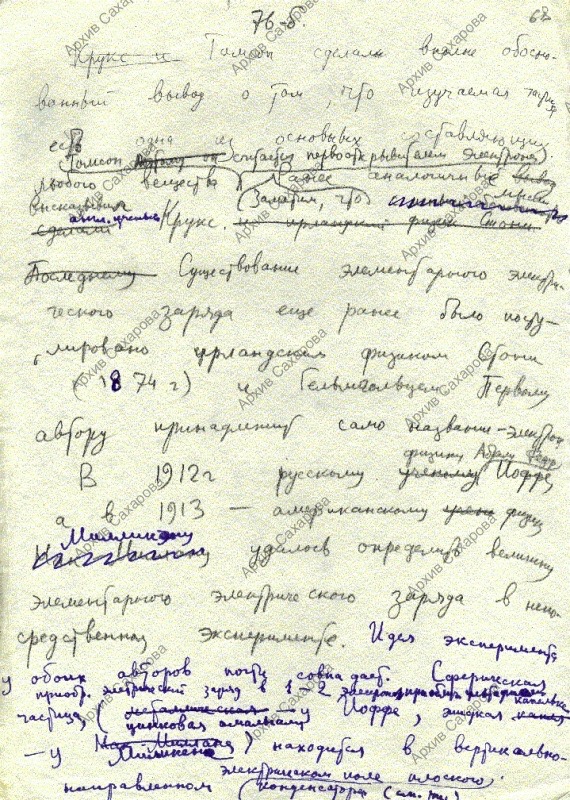 76-б.
68
Крукс и Томсон сделали вполне обосно-
ванный вывод о том, что изучаемая частица
есть одна из основных составляющих
Томсон считается первооткрывателем электрона).
любого вещества (Ранее аналогичные
высказывал (Заметим, что
сделали англ. ученый Крукс. и ирландский физик Стони
Последнему Существование элементарного электри-
ческого заряда еще ранее было посту-
лировано ирландским физиком Стони
(1874 г) и Гельмгольцем. Первому
автору принадлежит само название - электрон
В 1912г русскому ученому физику Иоффе,
а в 1913 - американскому физику
Милликену
удалось определить величину
элементарного электрического заряда в непо-
средственном эксперименте. Идея эксперимента
у обоих авторов почти совпадает. Сферическая
электрический заряд в 1, 2
частица, (металлическая - у Иоффе,
цинковая амальгама
- у Милликена) находится в вертикально-
электрическом поле плоского
направленном (конденсатора
Архив Сахарова